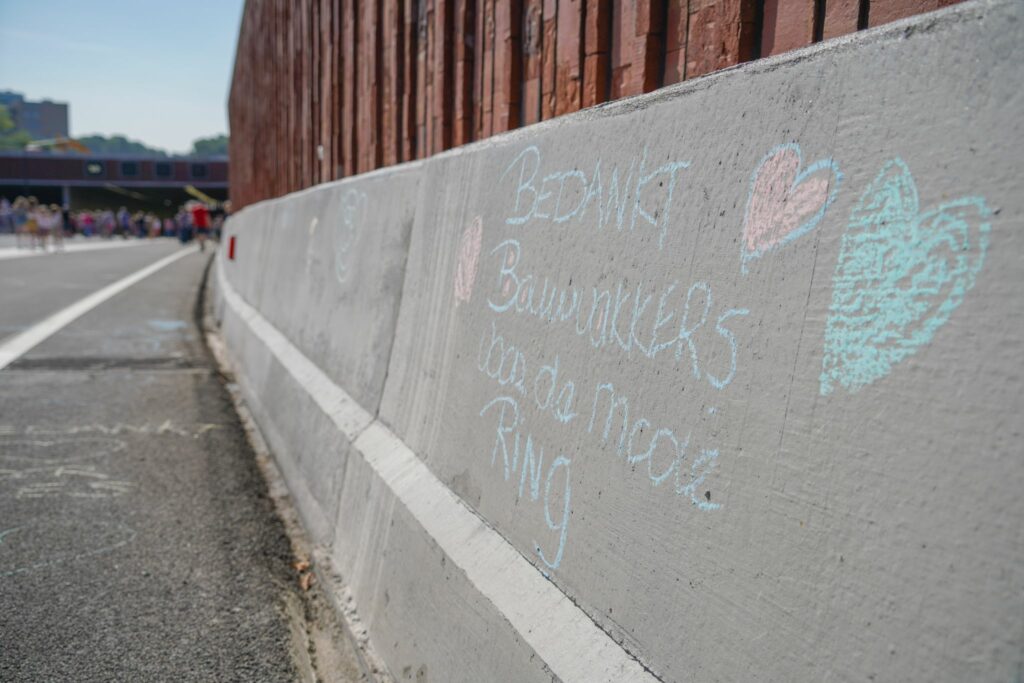 BEDANKT
BouwvakkERS
voor de mooie
RING